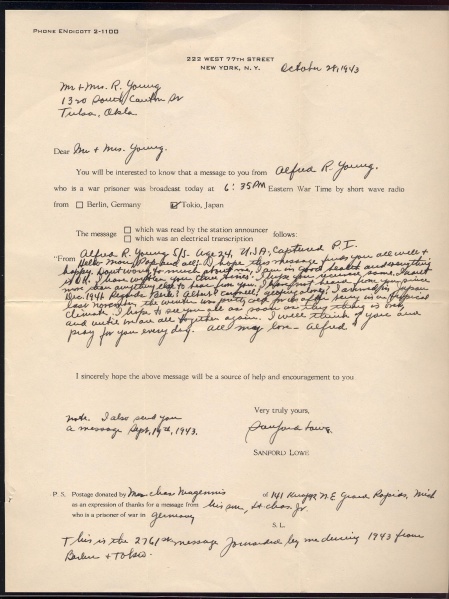 PHONE ENDICOTT 2-1100
222 WEST 77TH STREET
NEW YORK, N. Y.
October 29, 1943
Mr + Mrs. R. Young
1320 South Canton St
Tulsa, Okla
Dear Mr + Mrs. Young.
You will be interested to know that a message to you from Alfred R. Young,
who is a war prisoner was broadcast today at 6:35 PM Eastern War Time by short wave radio
from Berlin, Germany Tokio, Japan
The message which was read by the station announcer follows:
which was an electrical transcription
"From Alfred R. Young S/S. Age 24, U.S.A, Captured P.I.
Hello Mom, Pop and all. I hope this message finds you all well +
happy. Don't worry too much about me, I am in good health and everything
is O.K. I hope you're all well. I miss you very much, I want
more than anything else to hear from you, I have not heard from you since
Dec. 1941. Regards I arrived in Japan
last November, the winter was pretty cold for us after being in a tropical
climate. I hope to see you all as soon as
and we're all together again. I will think of you and
pray for you every day. All my love - Alfred"
I sincerely hope the above message will be a source of help and encouragement to you
Note. I also send you
a message Sept. 19th, 1943.
Very truly yours,
Sanford Lowe
SANFORD LOWE
P. S. Postage donated by Mrs Chas Magennis of 141 N.E Grand Rapids, Mich
as an expression of thanks for a message from his son, Lt. Chas. Jr.
who is a prisoner of war in Germany
S. L.
This is the 2761st message forwarded by me during 1943 from
Berlin + Tokio.